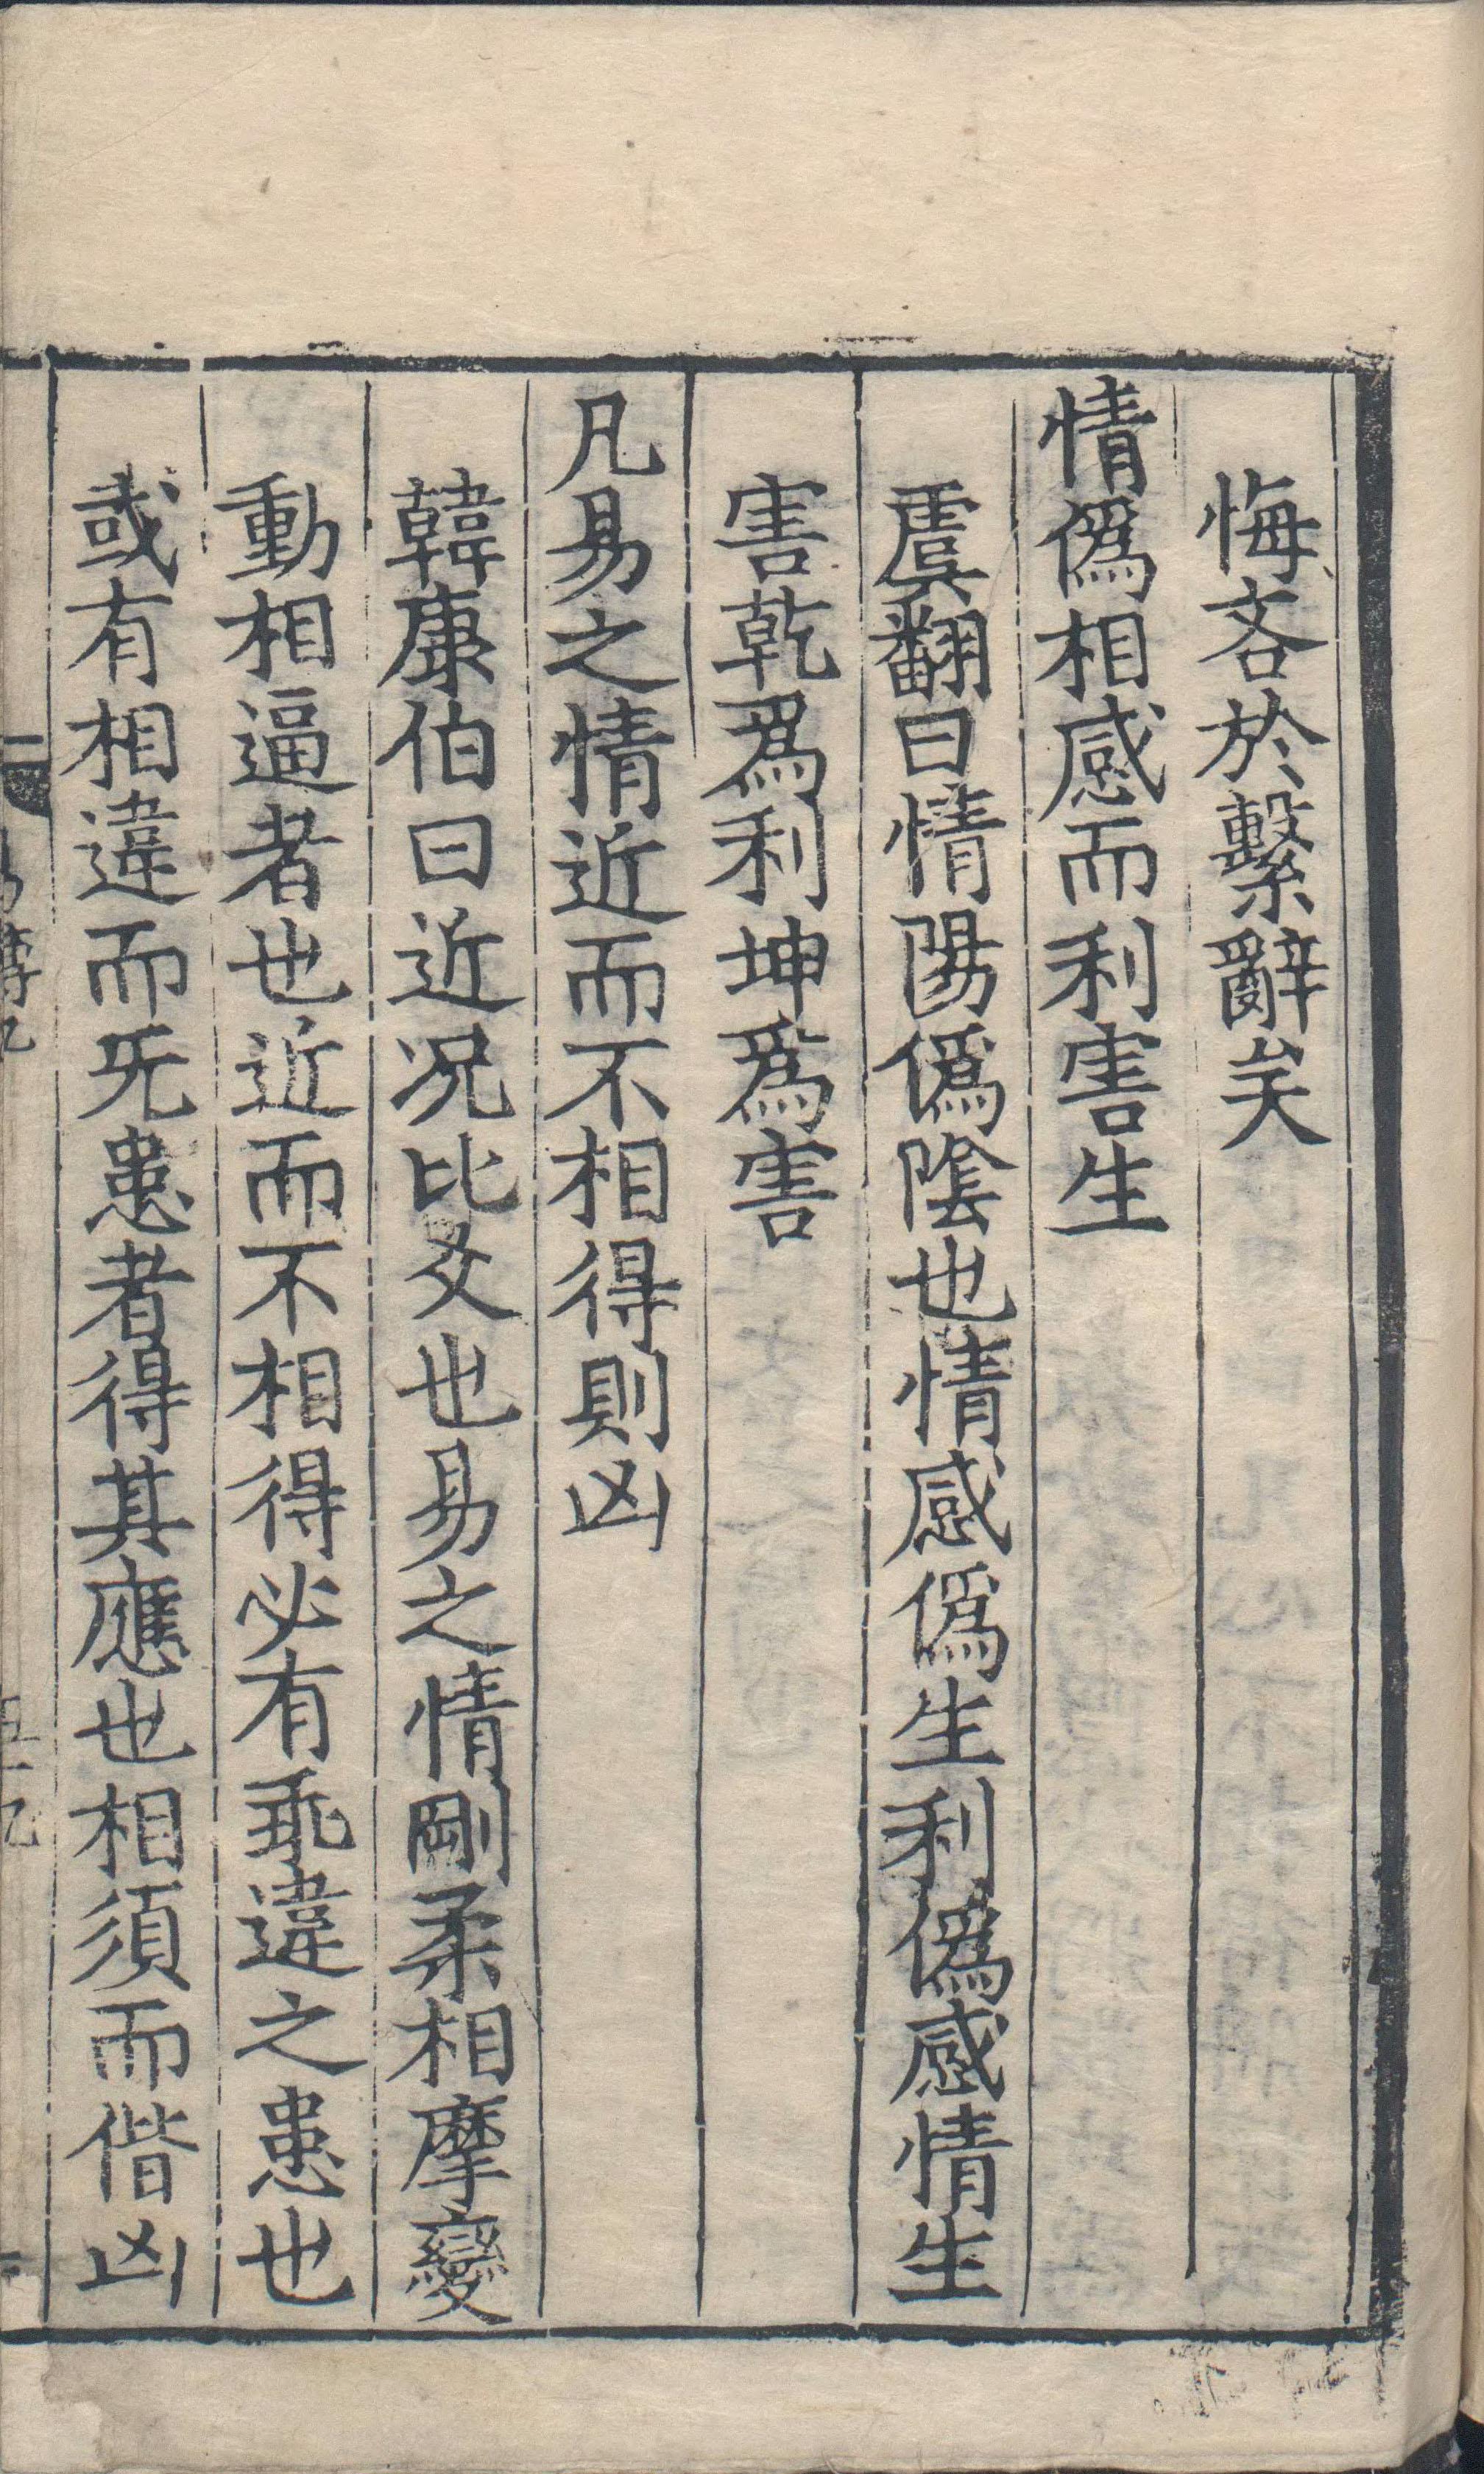 悔吝於繫辭矣
情僞相感而利害生
虞翻曰情陽僞陰也情感僞生利僞感情生
害乾爲利坤爲害
凡易之情近而不相得則凶
韓康伯曰近况比爻也易之情剛柔相摩變
動相逼者也近而不相得必有乖違之患也
或有相違而旡患者得其應也相須而偕凶